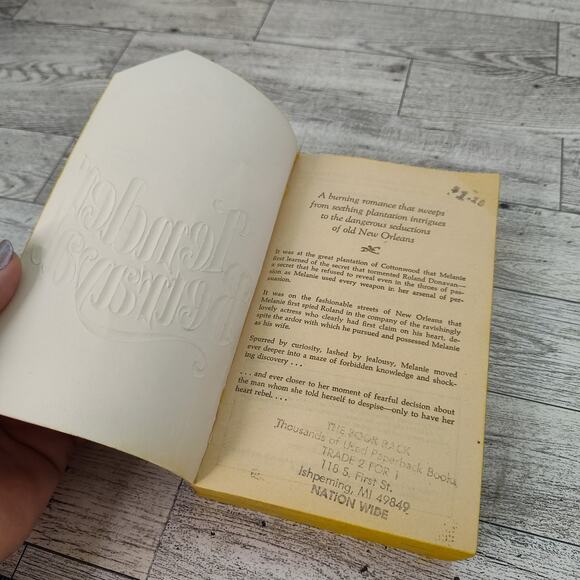 $1.20
A burning romance that sweeps
from seething plantation intrigues
to the dangerous seductions
of old New Orleans
It was at the great plantation of Cottonwood that Melanie
first learned of the secret that tormented Roland Donavan—
a secret that he refused to reveal even in the throes of pas-
sion as Melanie used every weapon in her arsenal of per-
suasion.
It was on the fashionable streets of New Orleans that
Melanie first spied Roland in the company of the ravishingly
lovely actress who clearly had first claim on his heart, de-
spite the ardor with which he pursued and possessed Melanie
as his wife.
Spurred by curiosity, lashed by jealousy, Melanie moved
ever deeper into a maze of forbidden knowledge and shock-
ing discovery . . .
. . . and ever closer to her moment of fearful decision about
the man whom she told herself to despise—only to have her
heart rebel. . . .
THE BOOK BACK
Thousands of Used Paperback Books
TRADE 2 FOR 1
118 S. First St.
Ishpeming, MI 49849
NATION WIDE